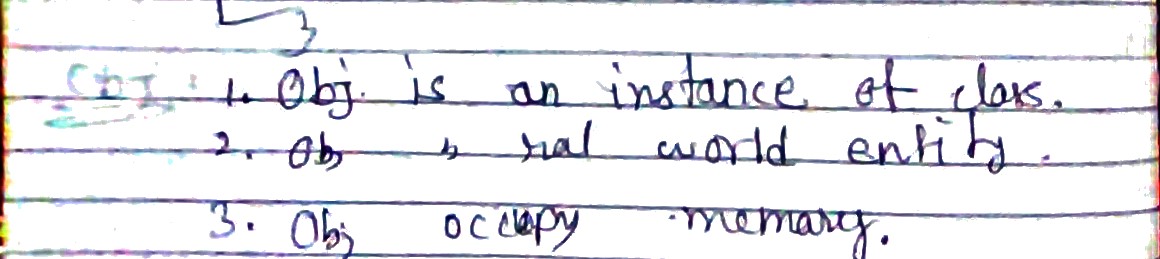 Obj : 1. Obj. is an instance of class.
2. Obj is real world entity.
3. Obj occupy memary.